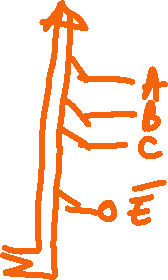 A
B
C
E̅